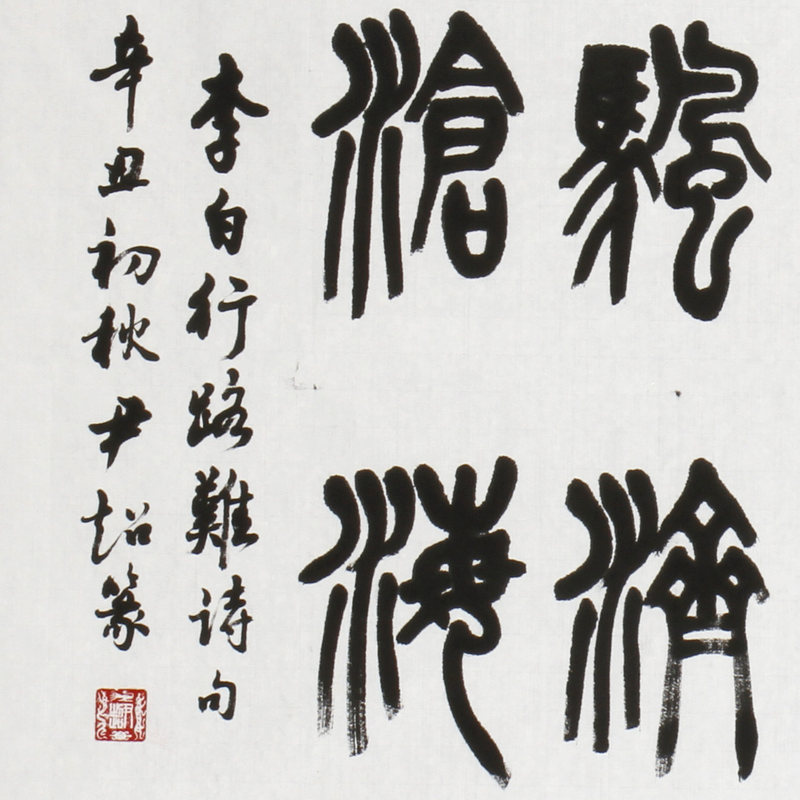 颿濟
滄海
李白行路難诗句
辛丑初秋尹超篆